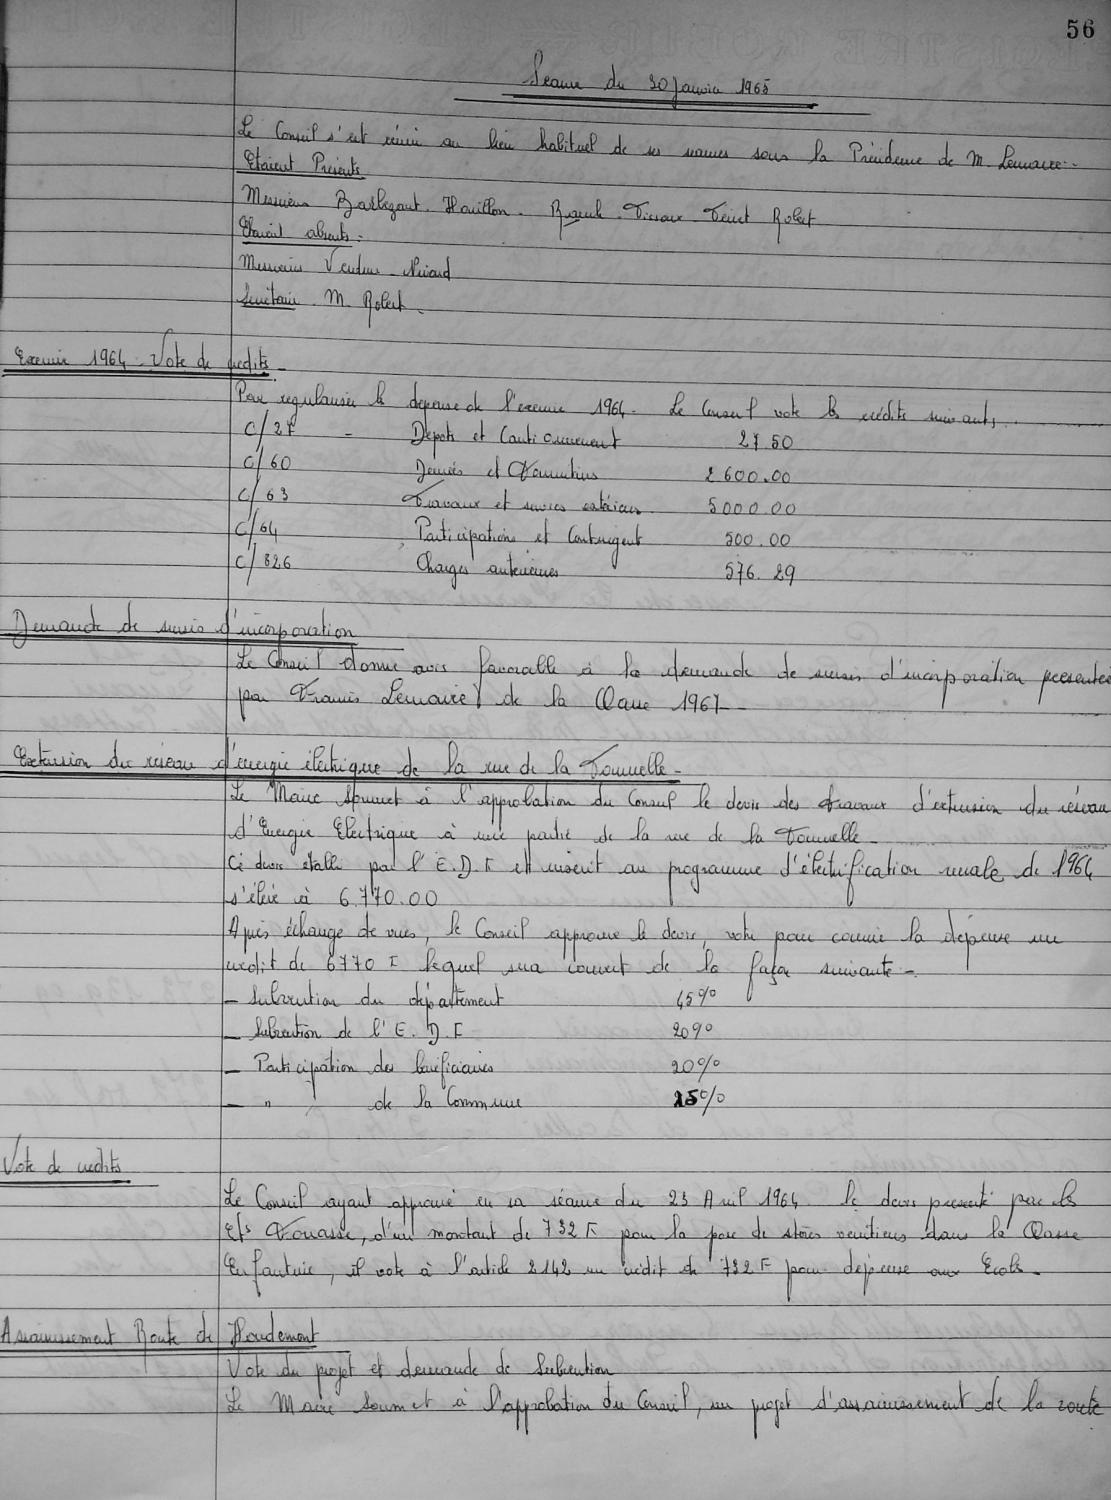 56
Séance du 30 Janvier 1965
Le Conseil s'est réuni au lieu habituel de ses séances sous la Présidence de M. Lemaire.
Etaient Présents
Messieurs Barbezant. Houillon. Robert
Etaient absents.
Messieurs
Secrétaire M. Robert.
Exercice 1964. Vote de crédits
Pour régulariser la dépense de l'exercice 1964. Le Conseil vote les crédits suivants.
C/27 - Dépots et Cautionnement 27.50
C/60 Denrées et Fournitures 2600.00
C/63 Travaux et services extérieurs. 5000.00
C/64 Participations et Contingent 500.00
C/826 Charges antérieures 576.29
Demande de sursis d'incorporation
Le Conseil donne avis favorable à la demande de sursis d'incorporation présentée
par Francis Lemaire de la Classe 1967 -
Extension du réseau d'énergie électrique de la rue de la Tournelle -
Le Maire soumet à l'approbation du Conseil le devis des travaux d'extension du réseau
d'Energie Electrique à une partie de la rue de la Tournelle.
Ce devis établi par l'E.D.F et inscrit au programme d'électrification rurale de 1964
s'élève à 6.770.00
Après échange de vues, le Conseil approuve le devis, vote pour couvrir la dépense un
crédit de 6770 F lequel sera couvert de la façon suivante -.
- Subvention du département 45%
- Subvention de l'E.D.F 20%
- Participation des bénéficiaires 20%
- " de la Commune 15%
Vote de crédits
Le Conseil ayant approuvé en sa séance du 23 Avril 1964. le devis présenté par les
Ets Fouasse, d'un montant de 732 F pour la pose de stores vénitiens dans la Classe
Enfantine, il vote à l'article 2142 un crédit de 732 F pour dépense aux Ecoles.
Assainissement Route de Houdemont
Vote du projet et demande de Subvention
Le Maire soumet à l'approbation du Conseil, un projet d'assainissement de la route